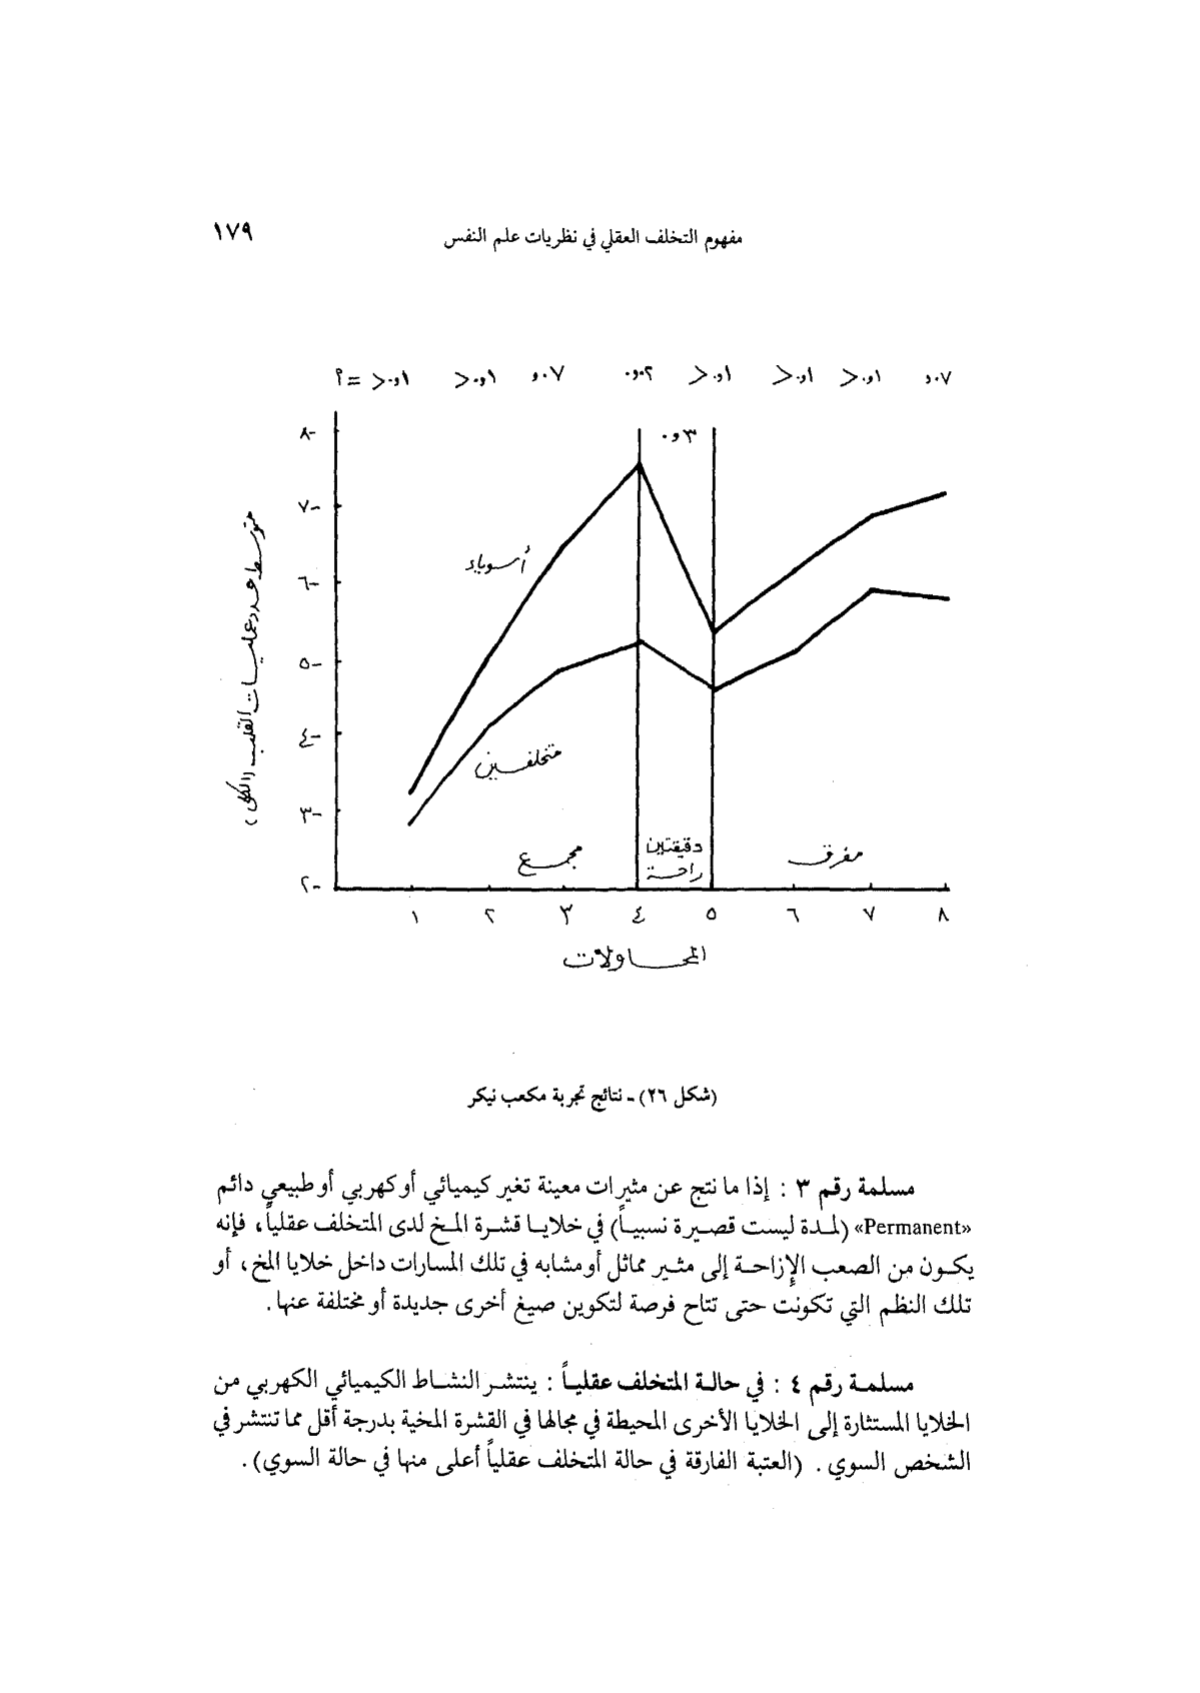 مفهوم التخلف العقلي في نظريات علم النفس ١٧٩
٨-
٧-
٦-
٥-
٤-
٣-
٢-
متوسط عدد عمليات القلب (الكلى)
أسوياء
متخلفين
مجمع
دقيقتين
راحة
مفرق
١ ٢ ٣ ٤ ٥ ٦ ٧ ٨
المحاولات
(شكل ٢٦) ـ نتائج تجربة مكعب نيكر
مسلمة رقم ٣ : إذا ما نتج عن مثيرات معينة تغير كيميائي أو كهربي أو طبيعي دائم
«Permanent» (لمدة ليست قصيرة نسبياً) في خلايا قشرة المخ لدى المتخلف عقلياً، فإنه
يكون من الصعب الإزاحة إلى مثير مماثل أو مشابه في تلك المسارات داخل خلايا المخ، أو
تلك النظم التي تكونت حتى تتاح فرصة لتكوين صيغ أخرى جديدة أو مختلفة عنها.
مسلمة رقم ٤ : في حالة المتخلف عقلياً : ينتشر النشاط الكيميائي الكهربي من
الخلايا المستثارة إلى الخلايا الأخرى المحيطة في مجالها في القشرة المخية بدرجة أقل مما تنتشر في
الشخص السوي . (العتبة الفارقة في حالة المتخلف عقلياً أعلى منها في حالة السوي).